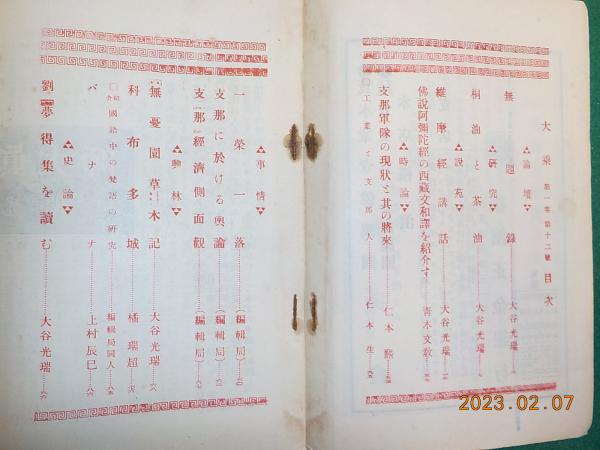 大乘 第一卷 第十二號 目次
論壇
無題錄 大谷光瑞
研究
桐油と茶油 大谷光瑞
說苑
維摩經講話 大谷光瑞
佛說阿彌陀經の西藏文和譯を紹介す 青木文敎
時論
支那軍隊の現狀と其の將來 仁本熙
工業と支那人 仁本生
事情
一榮一落 (編輯局)
支那に於ける輿論 (編輯局)
支「那」經濟側面觀 (編輯局)
藝林
無憂園草木記 大谷光瑞
科布多城 橘瑞超
國語中の梵語の研究 編輯局同人
バナナ 上村辰巳
史論
劉夢得集を讀む 大谷光瑞
2023.02.07